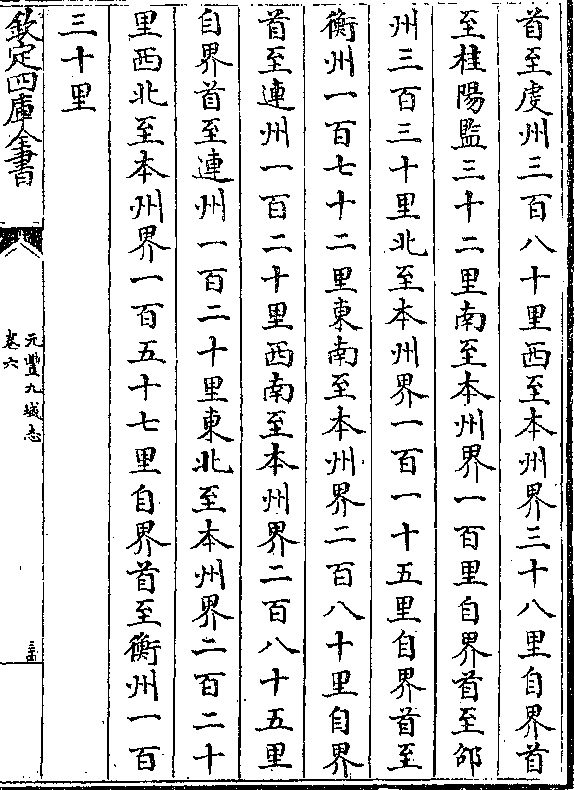 首至虔州三百八十里西至本州界三十八里自界首
至桂陽監三十二里南至本州界一百里自界首至邵
州三百三十里北至本州界一百一十五里自界首至
衡州一百七十二里東南至本州界二百八十里自界
首至連州一百二十里西南至本州界二百八十五里
自界首至連州一百二十里東北至本州界二百二十
里西北至本州界一百五十七里自界首至衡州一百
三十里
欽定四庫全書
元豐九域志
卷六